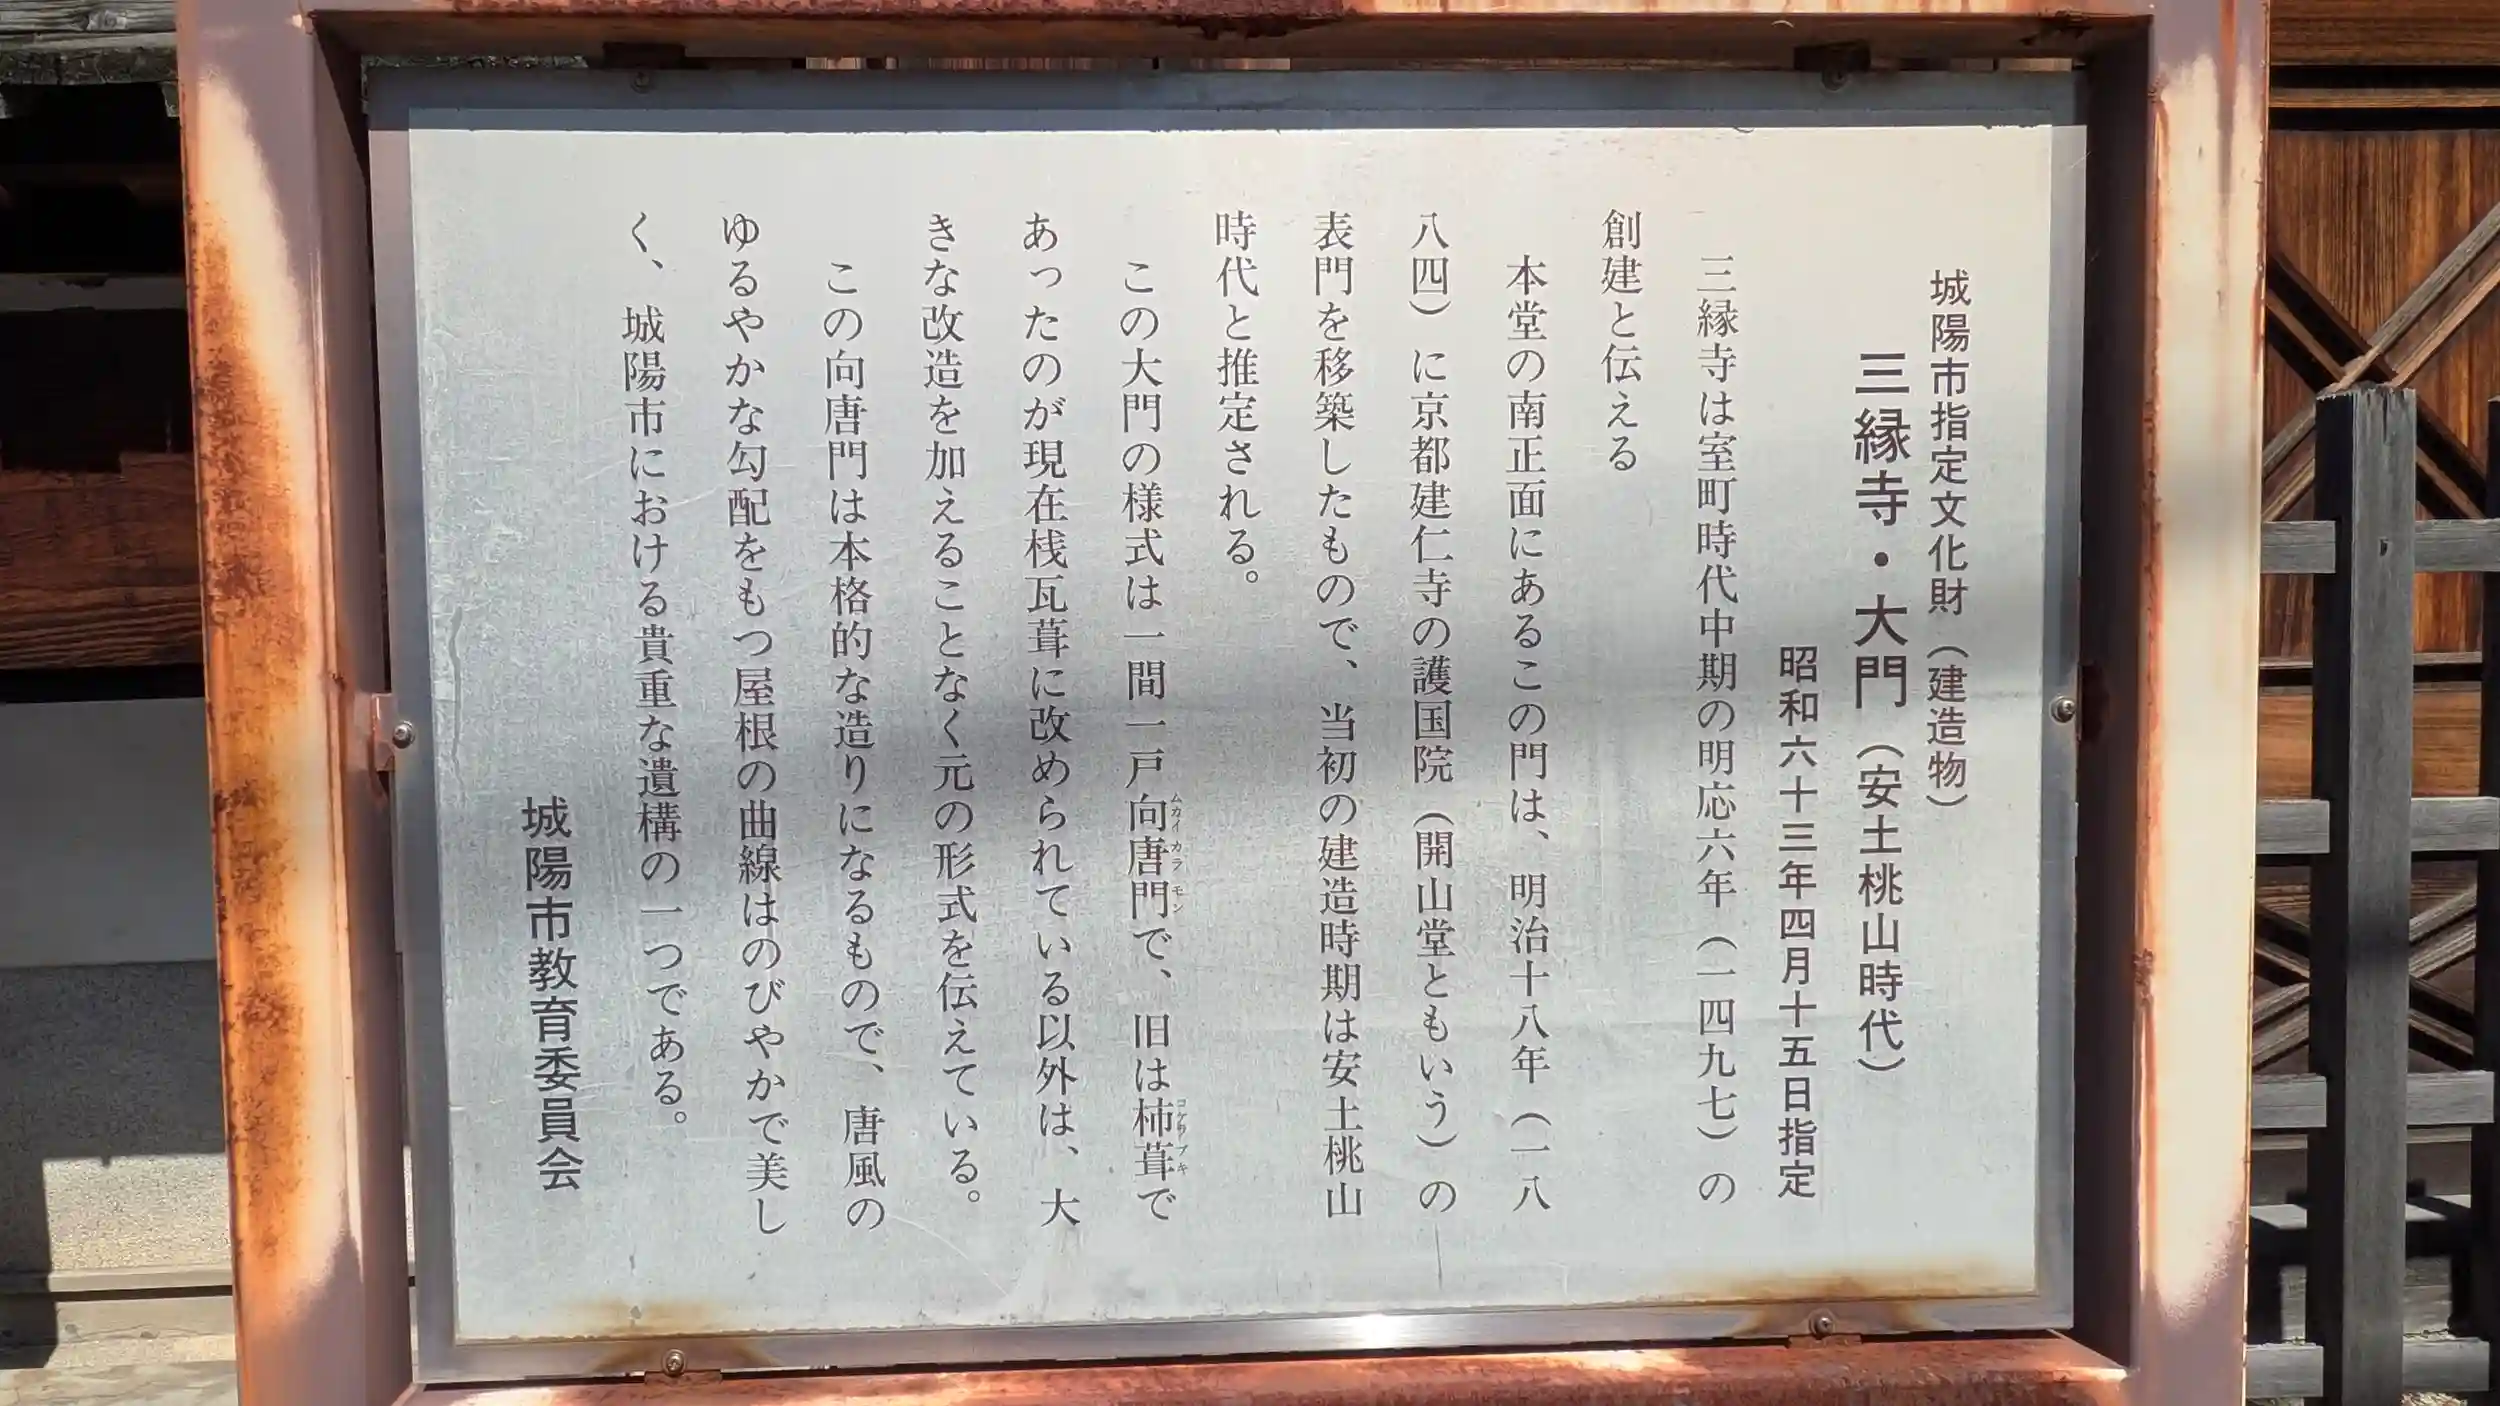 城陽市指定文化財（建造物）
三縁寺・大門（安土桃山時代）
昭和六十三年四月十五日指定
三縁寺は室町時代中期の明応六年（一四九七）の
創建と伝える
本堂の南正面にあるこの門は、明治十八年（一八
八四）に京都建仁寺の護国院（開山堂ともいう）の
表門を移築したもので、当初の建造時期は安土桃山
時代と推定される。
この大門の様式は一間一戸向唐門で、旧は杮葺で
ムカイカラモン
コケラブキ
あったのが現在桟瓦葺に改められている以外は、大
きな改造を加えることなく元の形式を伝えている。
この向唐門は本格的な造りになるもので、唐風の
ゆるやかな勾配をもつ屋根の曲線はのびやかで美し
く、城陽市における貴重な遺構の一つである。
城陽市教育委員会